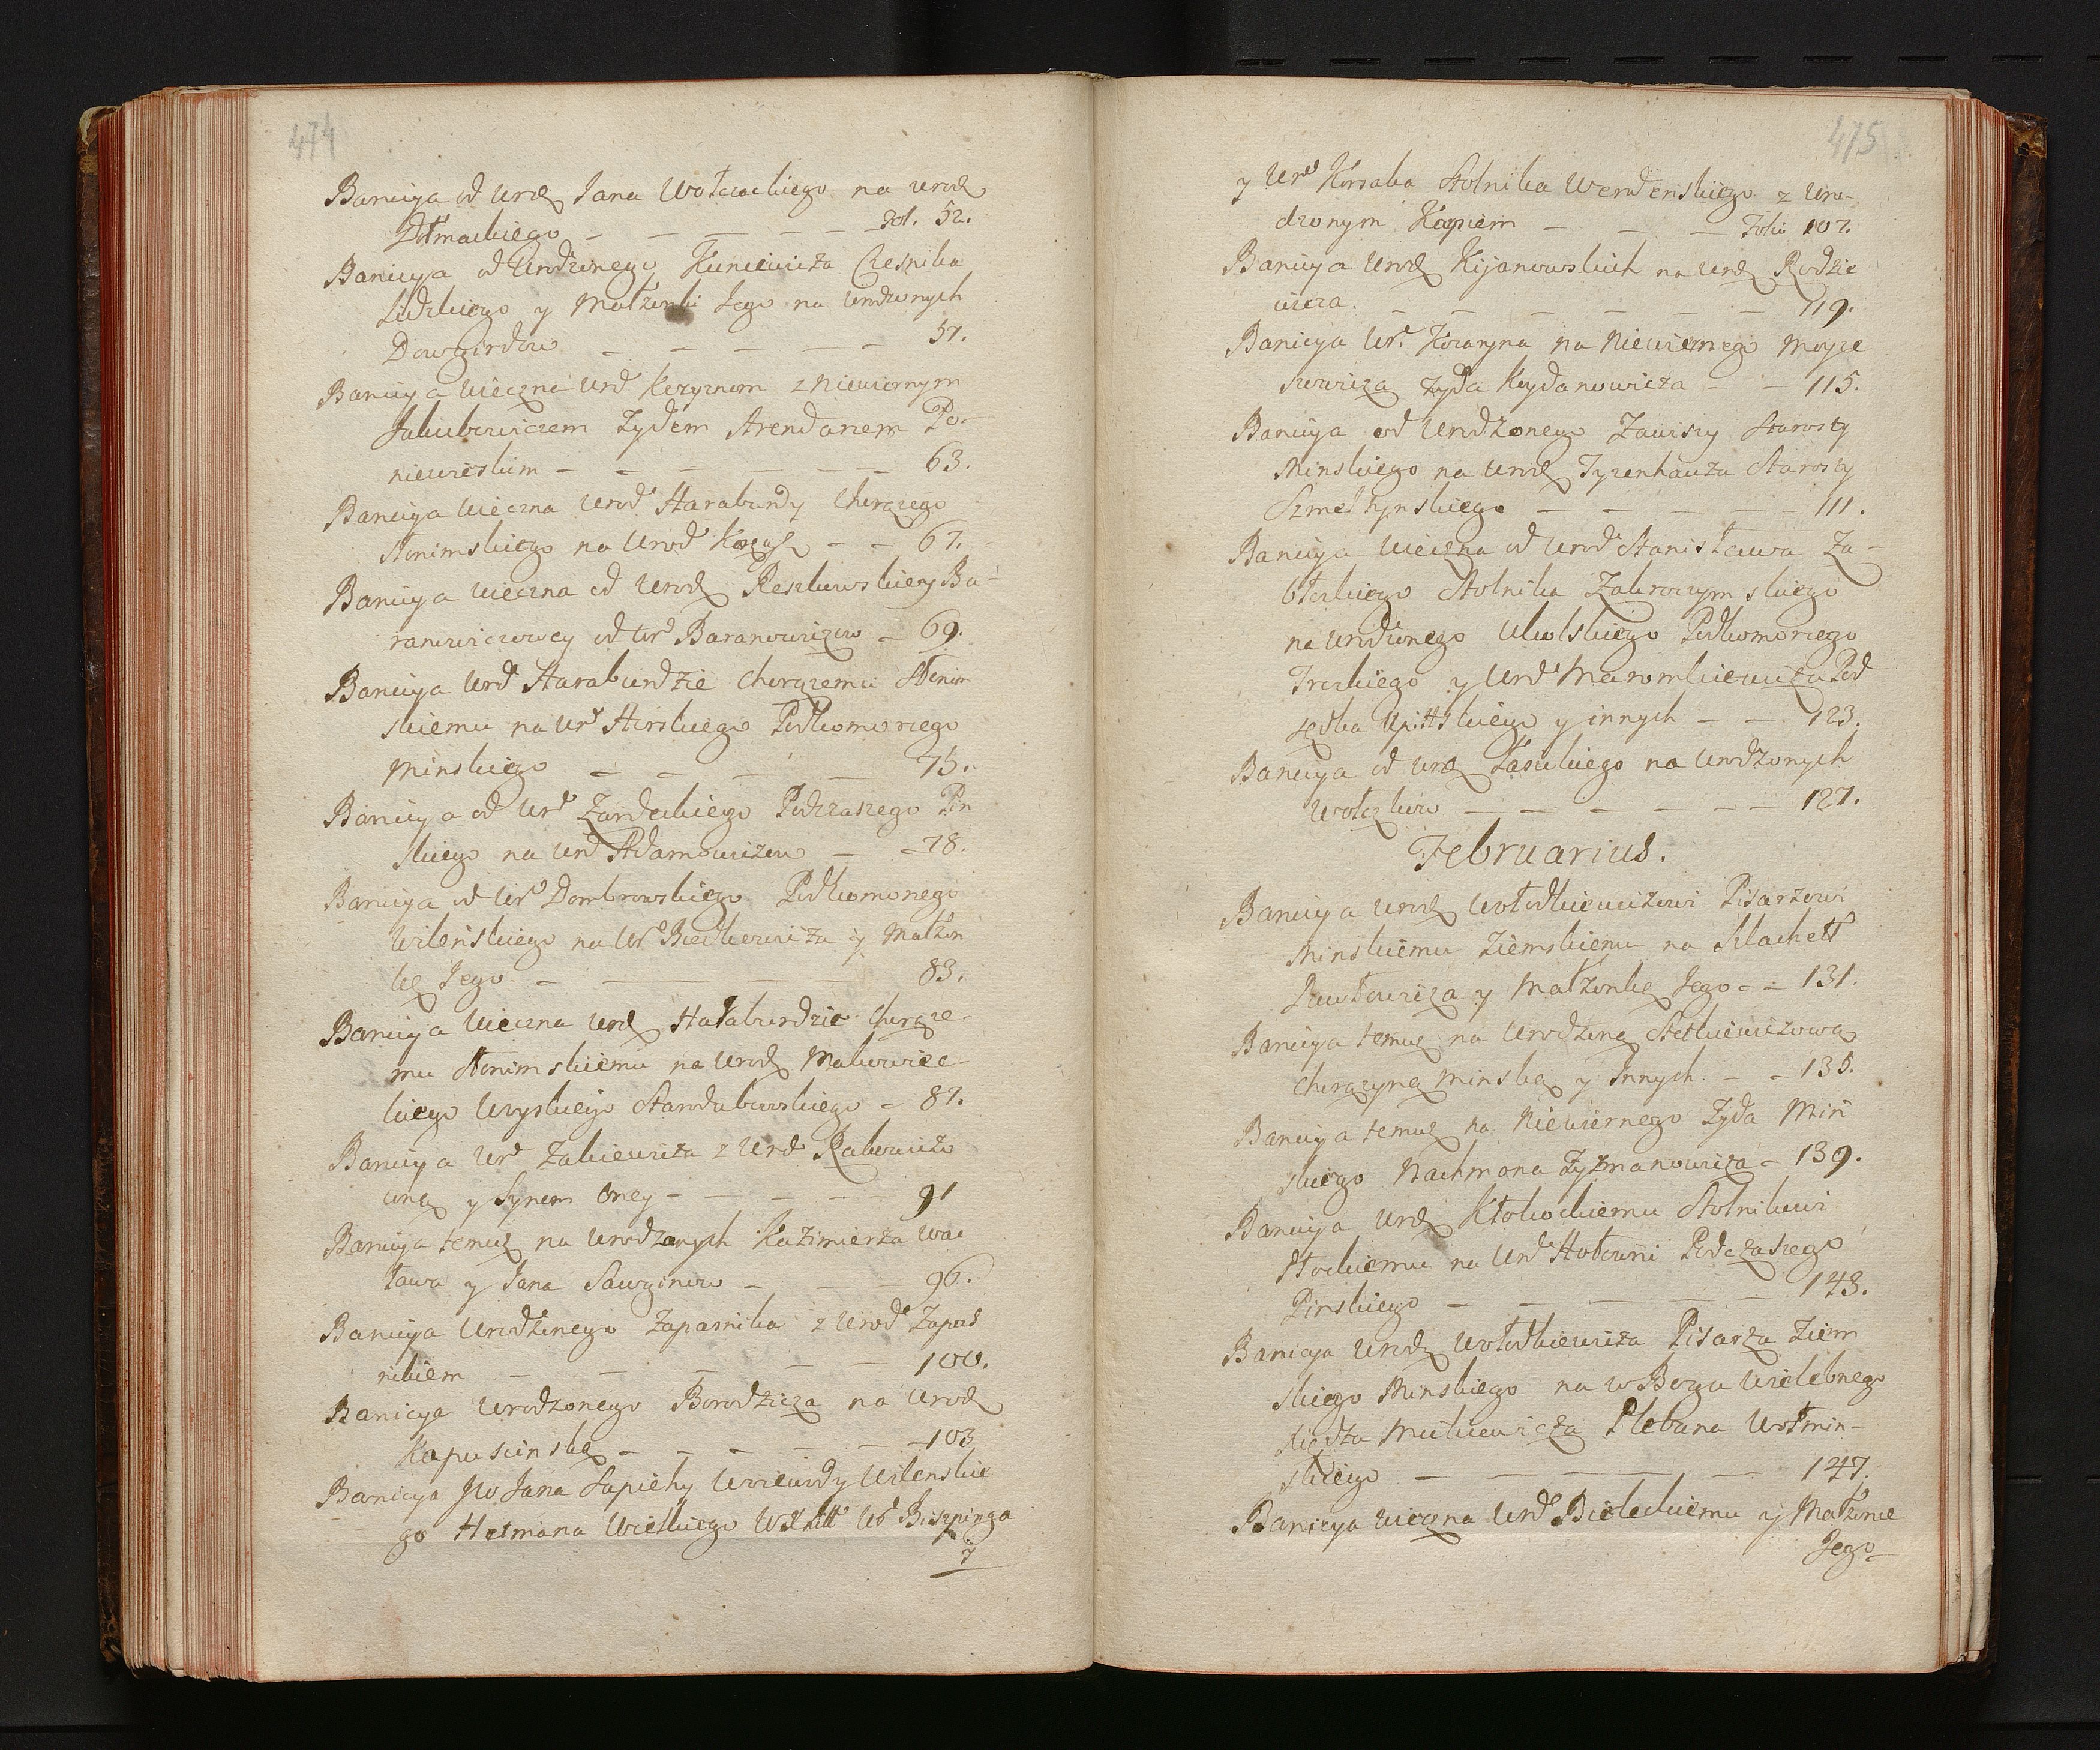 474
Banicya od Urodz Jana Wołczackiego na urodz
Dłmackiego — — — — — fol. 52.
Banicya od Urodzonego Kuncewicza Cześnika
Lidzkiego y Małżonki Jego na Urodzonych
Dowgirdów — — — — — 57.
Banicya wieczna Urod Kezyznom z niewiernym
Jakubowiczem Zydem Arendarzem Po-
niewieskim — — — — — — 63.
Banicya wieczna Urod Haraburdy Chorązego
Słonimskiego na Urod — — 67.
Banicya wieczna od Urodz Reszkowskiey Ba-
ranowiczowey od Ur Baranowiczow — 69.
Banicya Urd Haraburdzie Chorązemu Słonim
skiemu na Ur Horskiego Podkomorzego
Minskiego — — — — 75.
Banicya od Ur Zardeckiego Podczaszego Pin
skiego na Urd Adamowiczow — — 78.
Banicya od Ur Dombrowskiego Podkomorzego
Wilenskiego na Ur y Małżon
kę Jego — — — — 83.
Banicya wieczna Urd Haraburdzie Chorąze-
mu Słonimskiemu na Urodz Makowiec-
kiego Woyskiego Starodubowskiego — 87.
Banicya Ur Zakiewicza z Urd Rakowiczo
wną y Synem Oney — — — — 91
Banicya temuz na Urodzonych Kazimierza Wac
ława y Jana Sawginow — — — 96.
Banicya Urodzonego Zapasnika z Urod Zapas
nikiem — — — — — 100.
Banicya Urodzonego Borodzicza na Urodz
Kapuscinską — — — — — 103
Banicya JW Jana Sapiehy Woiewody Wilenskie
go Hetmana Wielkiego WXLitt Ur Biszpinga
y
475
y Urd Korsaka Stolnika Wendenskiego z Uro-
dzonym Kopciem — — — Folio 107.
Banicya Urodz Kijanowskich na Urdz Rodzie
wicza. — — — — — — 119.
Banicya Ur. Kozaryna na Niewiernego Moyze
szowicza Zyda Keydanowicza — — 115.
Banicya od Urodzonego Zawiszy Starosty
Minskiego na Urodz Tyzenhauza Starosty
Szmeltynskiego — — — — — 111.
Banicya wieczna od Urod Stanisława Za-
błockiego Stolnika Zakroczymskiego
na Urodzonego Podkomorzego
Trockiego y Urd Maromkiewicza Pod
sędka Upittskiego y innych — — 123.
Banicya od Urdz Łaszckiego na Urodzonych
Wołczkow — — — — — — 127.
Februarius.
Banicya Urodz Wołodkiewiczowi Pisarzowi
Minskiemu Ziemskiemu na Szlachett
Pawłowicza y Małżonkę Jego — — 131.
Banicya temuz na Urodzoną Stetkiewiczową
Chorązyną Minską y Innych — — 135.
Banicya temuz na Niewiernego Zyda Miń
skiego Nachmana Zyzmanowicza — 139.
Banicya Urdz Kłokockiemu Stolnikowi
Płockiemu na Urd Hołowni Podczaszego
Pinskiego — — — — — 143.
Banicya Urodz Wołodkiewicza Pisarza Ziem
skiego Minskiego na w Bogu Wielebnego
Xiędza Mickiewicza Plebana Wołmin-
skiego — — — — — 147.
Banicya wieczna Urd Bieleckiemu y Małżonce
Jego